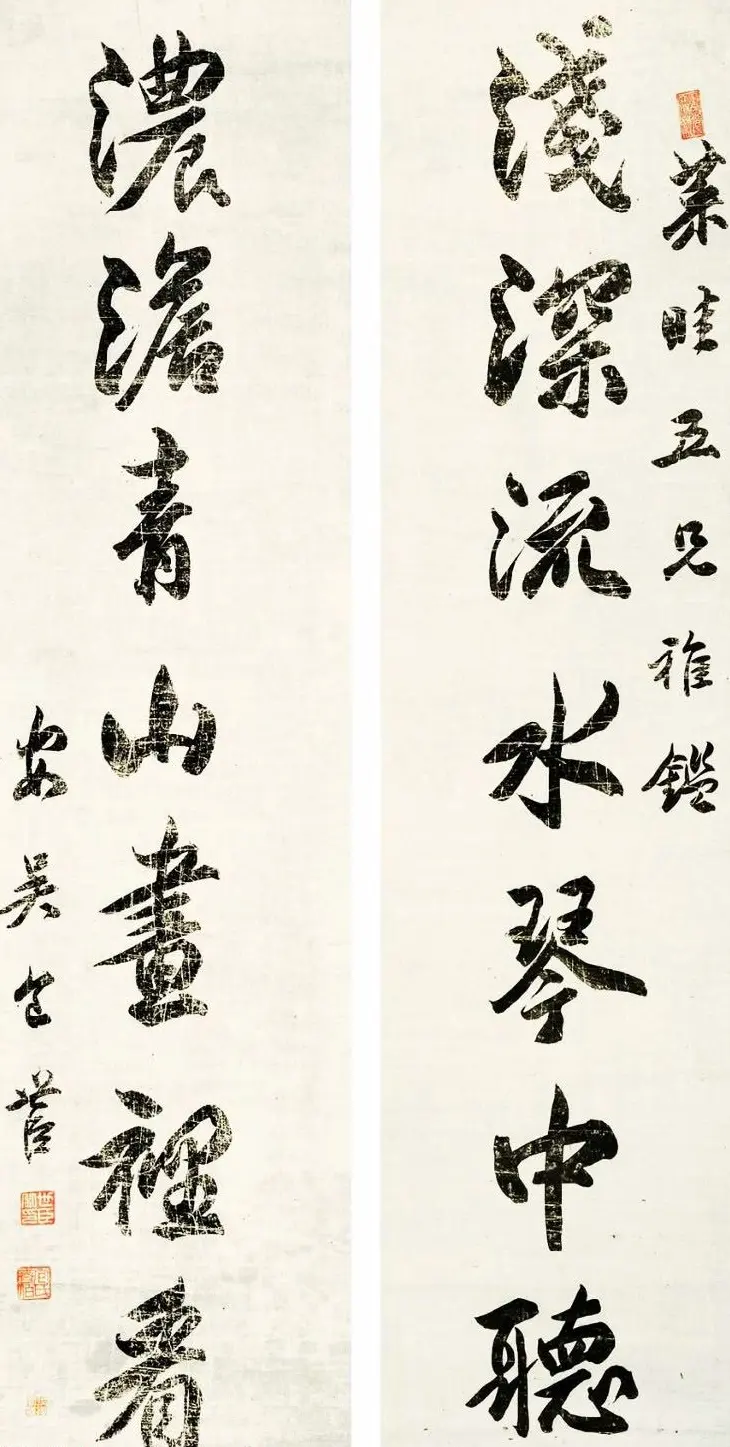 菜畦五兄雅鑑
淺深流水琴中聽
濃澹青山畫裡看
安吳包世臣